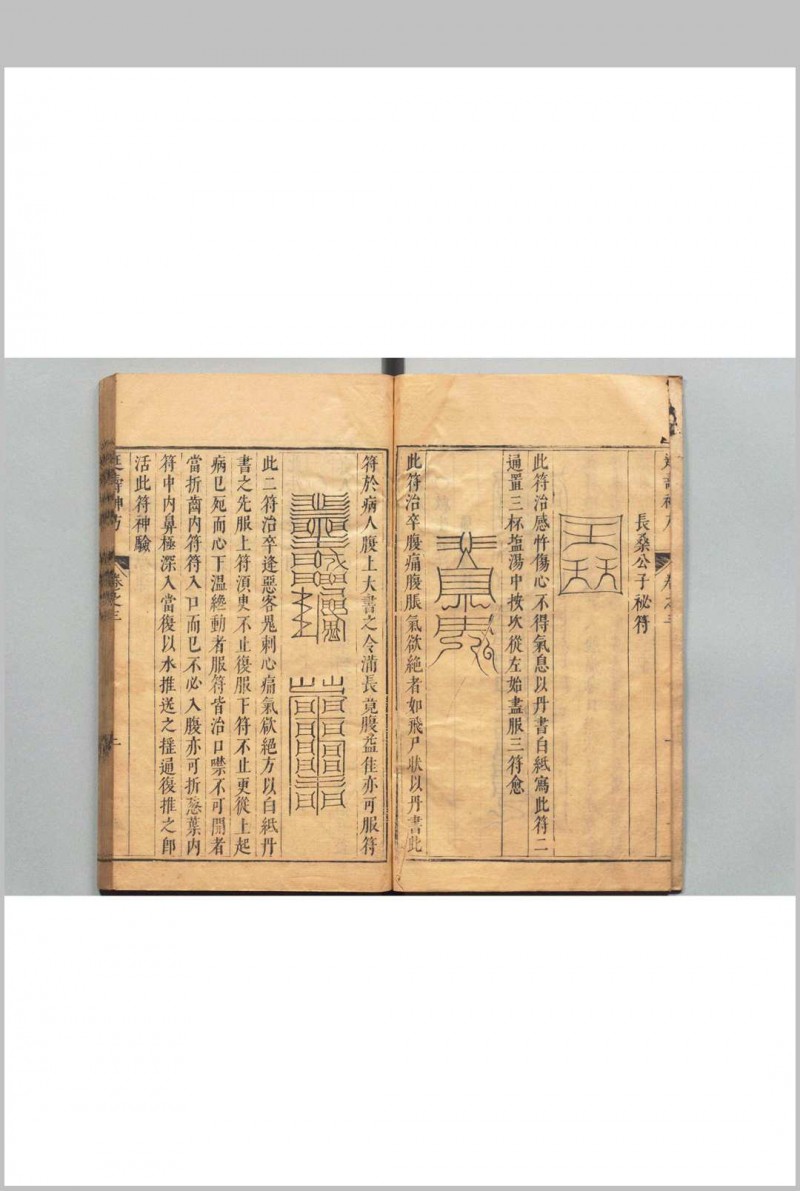 長桑公子祕符
此符治感忤傷心不得氣息以丹書白紙寫此符二
通置三杯塩湯中按次從左始盡服三符愈
此符治卒腹痛腹脹氣欲絶者如飛尸狀以丹書此
符於病人腹上大書之令滿長竟腹益佳亦可服符
此二符治卒逢惡客鬼刺心痛氣欲絶方以白紙丹
書之先服上符須臾不止復服下符不止更從上起
病已死而心下温纔動者服符皆治口噤不可開者
當折齒内符符入口而已不必入腹亦可折葱葉内
符中内鼻極深入當復以水推送之擁通復推之即
活此符神驗
延壽神方
卷之三